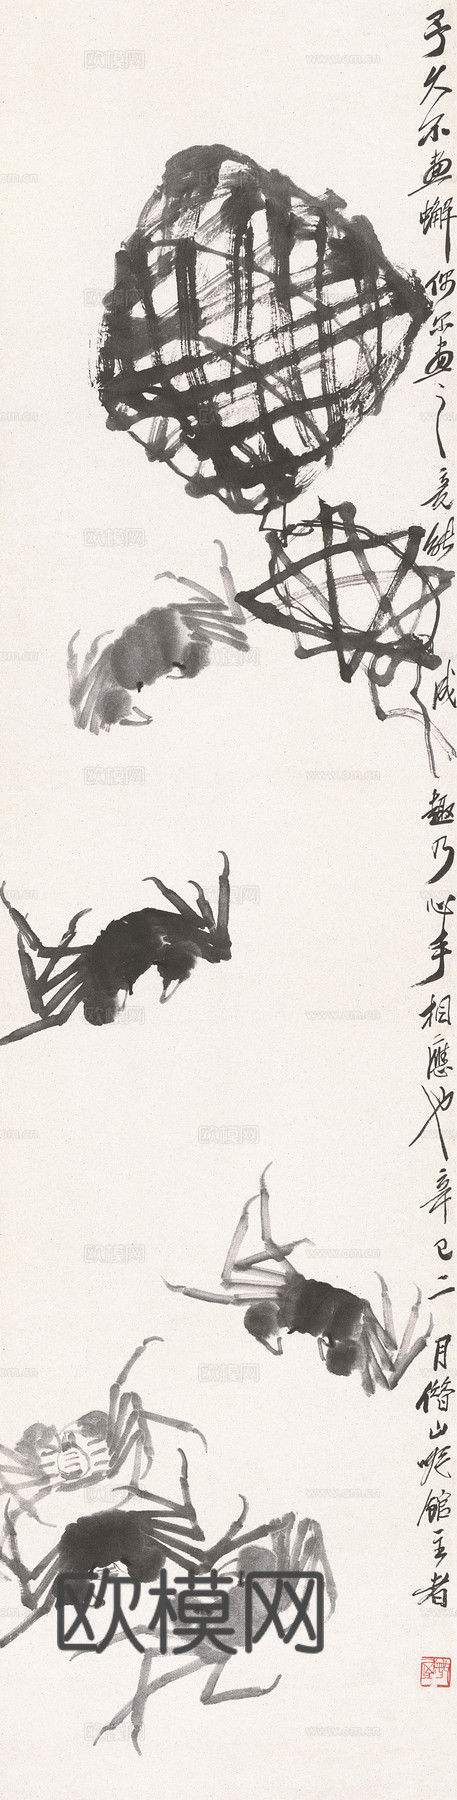 予久不畫蠏偶尔畫之竟能成趣乃心手相應也辛巳二月借山吟館主者
欧模网
www.om.cn